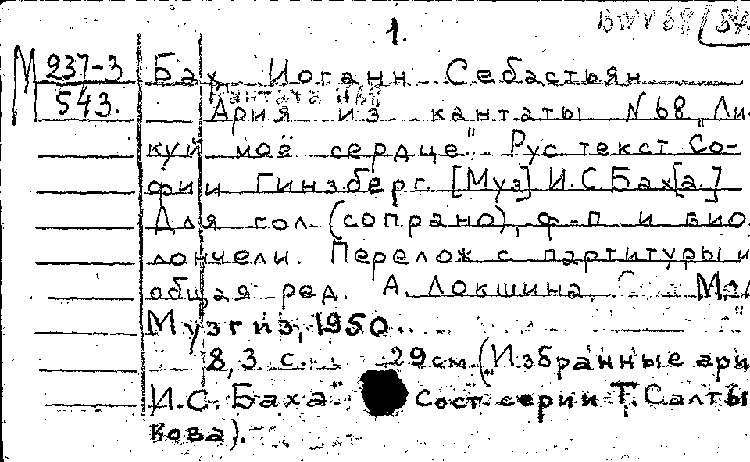 1.
BWV 68
М 237-3
543.
Бах Иоганн Себастьян
Кантата №68
Ария из кантаты N 68 „Ли-
куй моё сердце" Рус текст Со-
фии Гинзберг. [Муз] И.С Бах[а.]
Для гол (сопрано), ф-п и вио
лончели. Перелож с партитуры и
общая ред. А. Локшина.
Музгиз, 1950.
8,3 с. 29см („Избранные ари
И.С. Баха" Сост серии Т. Салты
кова).